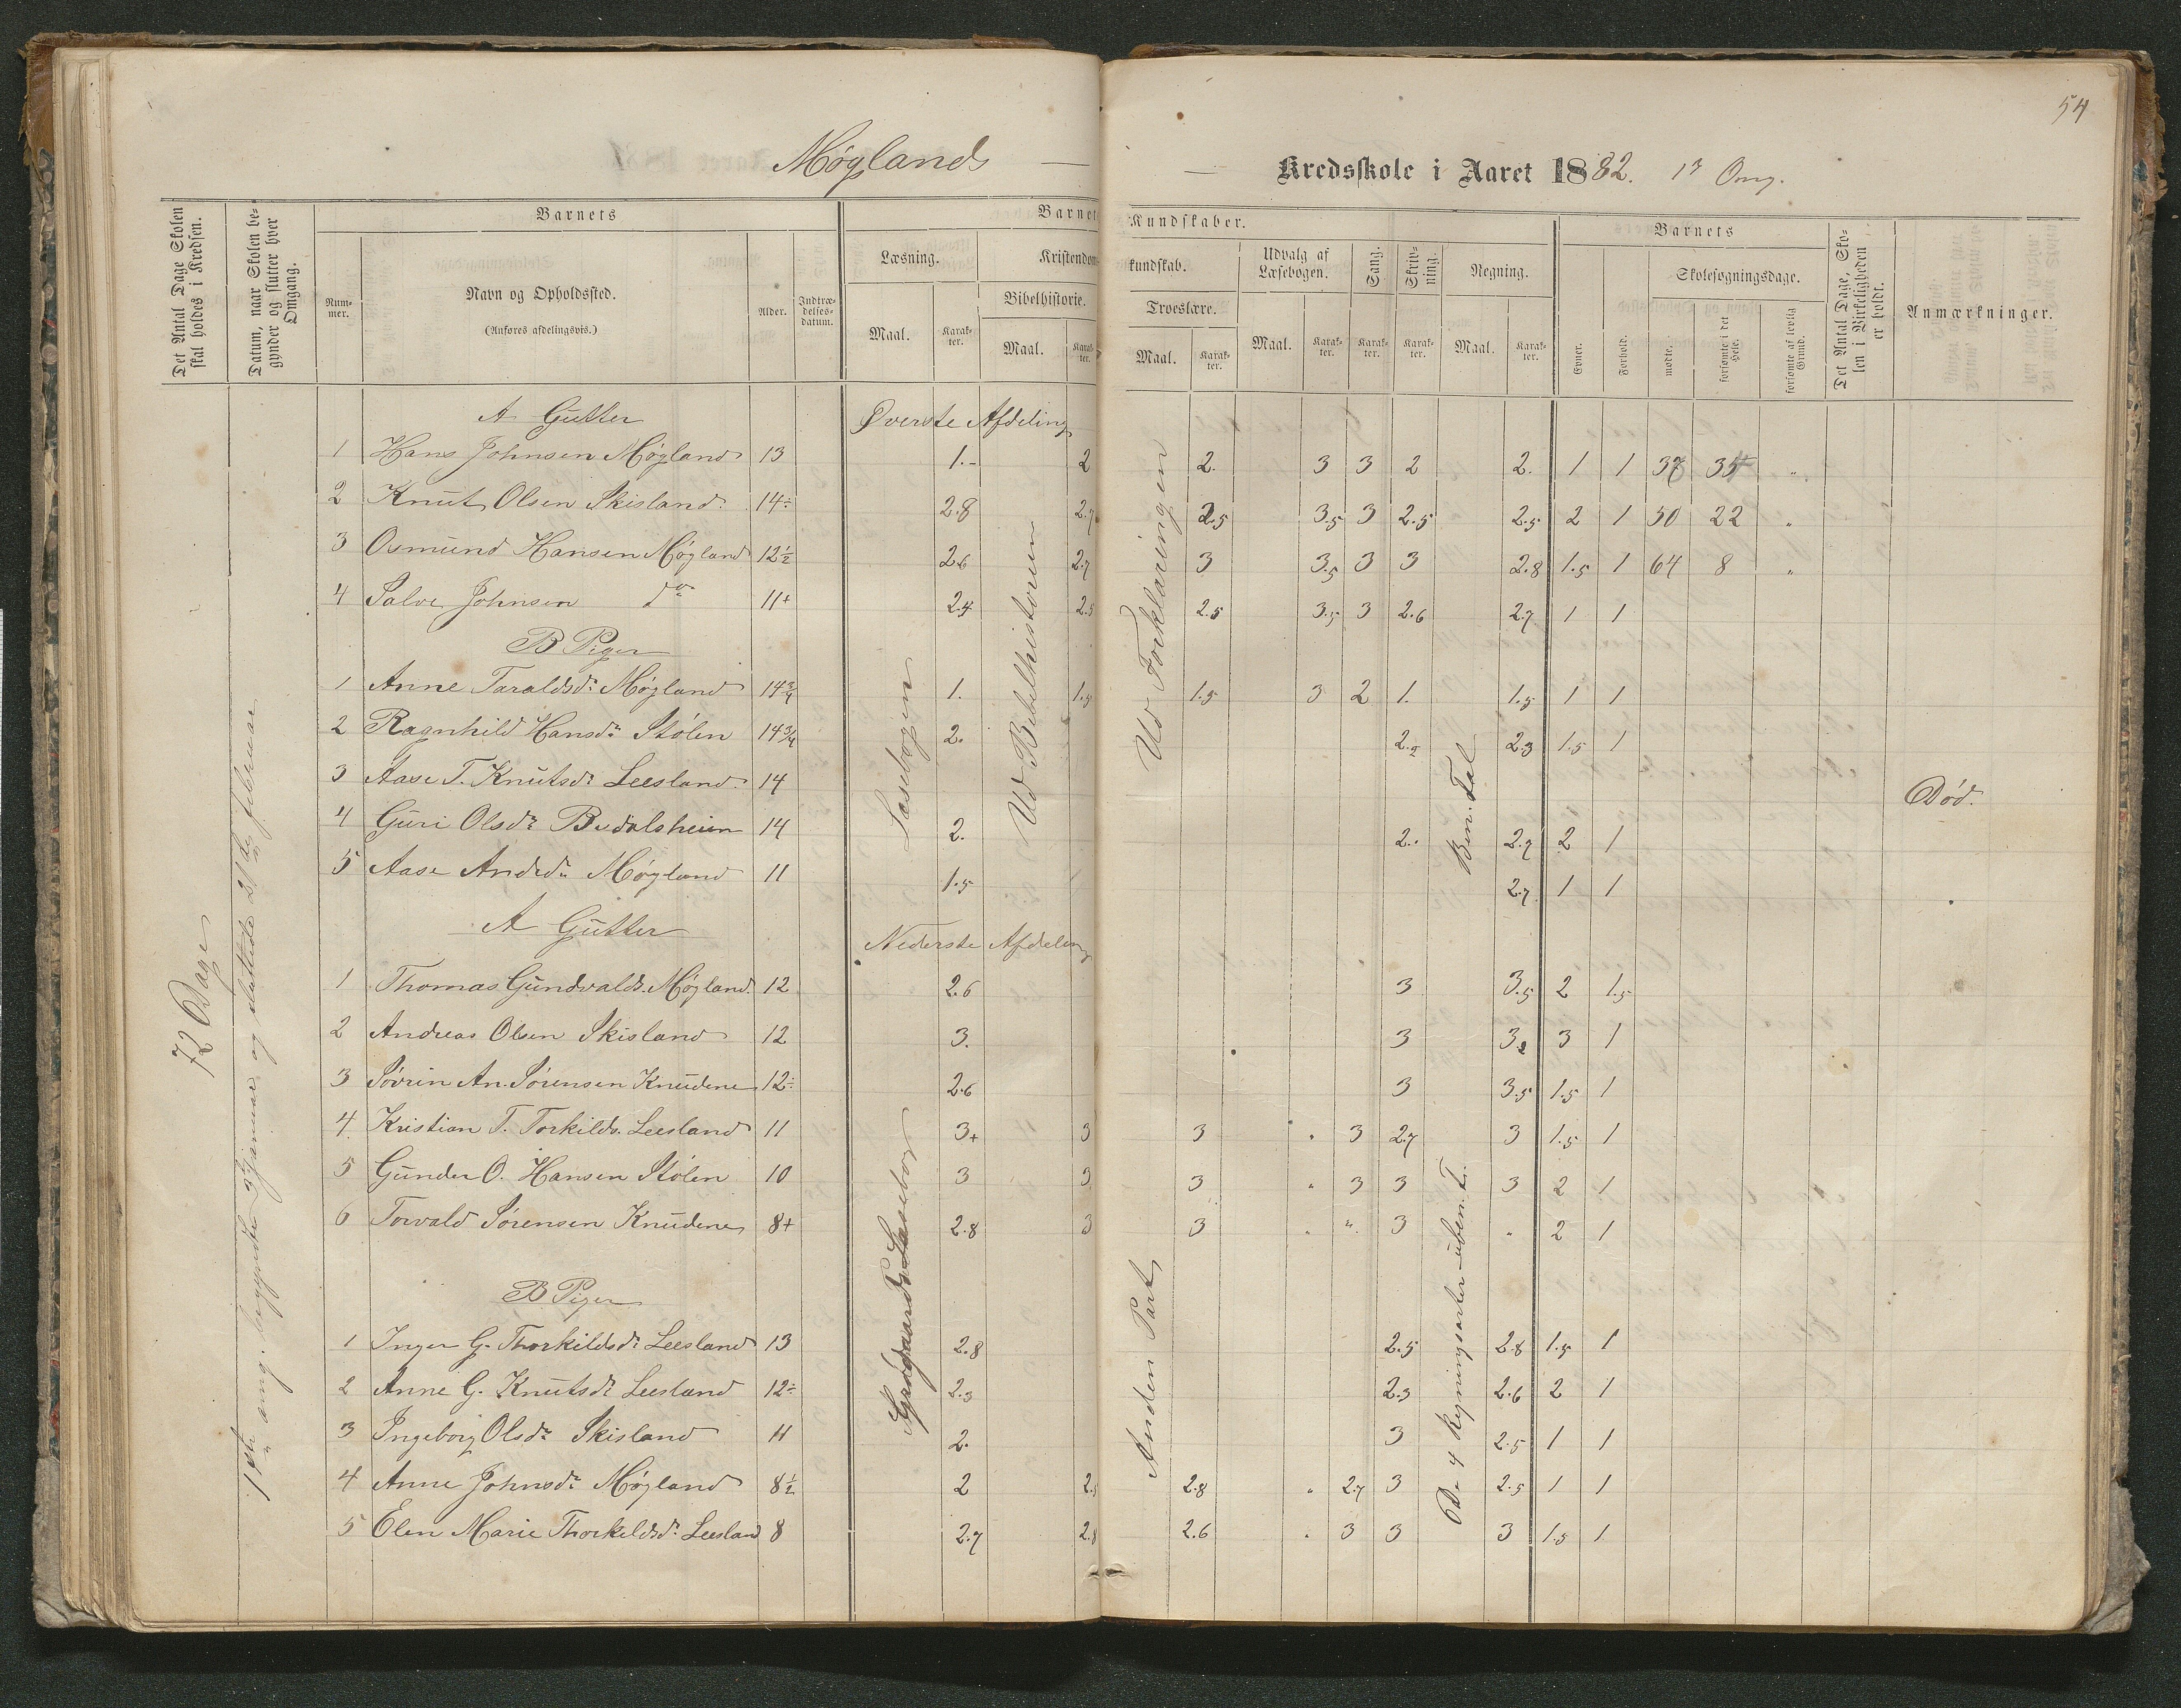 54
Møglands — — Kredsskole i Aaret 1882. 1ste Omg.
Det Antal Dage Skolen skal holdes i Kredsen.
Datum, naar Skolen begynder og slutter hver Omgang.
Barnets
Nummer.
Navn og Opholdssted.
(Anføres afdelingsvis.)
Alder.
Indtrædelsesdatum.
Barnets Kundskaber.
Læsning.
Maal.
Karakter.
Kristendomskundskab.
Bibelhistorie.
Maal.
Karakter.
Troeslære.
Maal.
Karakter.
Udvalg af Læsebogen.
Maal.
Karakter.
Sang.
Karakter.
Skrivning.
Karakter.
Regning.
Maal.
Karakter.
Barnets
Evner.
Forhold.
Skolesøgningsdage.
mødte.
forsømte i det Hele.
forsømte af lovlig Grund.
Det Antal Dage, Skolen i Virkeligheden er holdt.
Anmærkninger.
72 Dage
1ste omg. begyndte 3 Januar og sluttede 21de februar
Læsebogen
Ud Bibelhistorien
Ud Forklaringen
Ben. Tal
A Gutter Øverste Afdeling
1 Hans Johnsen Møgland 13 1.- 2 2. 3 3 2 2. 1 1 37 35 "
2 Knut Olsen Skisland 14÷ 2.8 2.7 2.5 3.5 3 2.5 2.5 2 1 50 22 "
3 Osmund Hansen Møgland 12½ 2.6 2.7 3 3.5 3 3 2.8 1.5 1 64 8 "
4 Salve Johnsen do 11+ 2.4 2.5 2.5 3.5 3 2.6 2.7 1 1
B Piger
1 Anne Taraldsdr Møgland 14¾ 1. 1.5 1.5 3 2 1. 1.5 1 1
2 Ragnhild Hansdr Stølen 14¾ 2. 2.2 2.3 1.5 1
3 Aase T. Knutsdr Leesland 14 Død.
4 Guri Olsdr 14 2. 2. 2.7 2 1
5 Aase Andrdr Møgland 11 1.5 2.7 1 1
A Gutter Nederste Afdeling
1 Thomas Gundvalds. Møgland. 12 2.6 3 3.5 2 1.5
2 Andreas Olsen Skisland 12 3. 3 3.2 3 1
3 Søvrin An. Sørensen Knudene 12÷ 2.6 3 3.5 1.5 1
4 Kristian T. Torkilds. Leesland 11 3+ 3 3 " 3 2.7 3 1.5 1
5 Gunder O. Hansen Stølen 10 3 3 3 " 3 3 3 2 1
6 Torvald Sørensen Knudene 8+ 2.8 3 3 " " 3 " 2 1
B Piger
Læsebog
Anden Part
De 4 Regningsarter uben. T.
1 Inger G. Thorkildsdr Leesland 13 2.8 2.5 2.8 1.5 1
2 Anne G. Knutsdr Leesland 12÷ 2.3 2.3 2.6 2 1
3 Ingeborg Olsdr Skisland 11 2. 3 2.5 1 1
4 Anne Johnsdr Møgland 8½ 2 2.5 2.8 " 2.7 3 2.5 1 1
5 Elen Marie Thorkildsdr Leesland 8 2.7 2.8 2.6 " 3 3 3 1.5 1